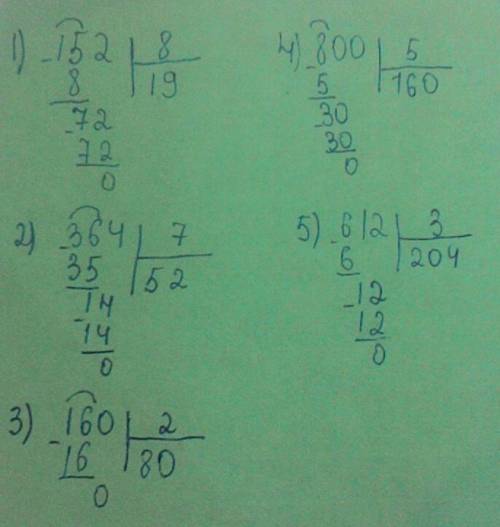 1) -152 | 8
8 | 19
-72
72
0
2) -364 | 7
35 | 52
-14
14
0
3) -160 | 2
16 | 80
0
4) -800 | 5
5 | 160
-30
30
0
5) -612 | 3
6 | 204
-12
12
0